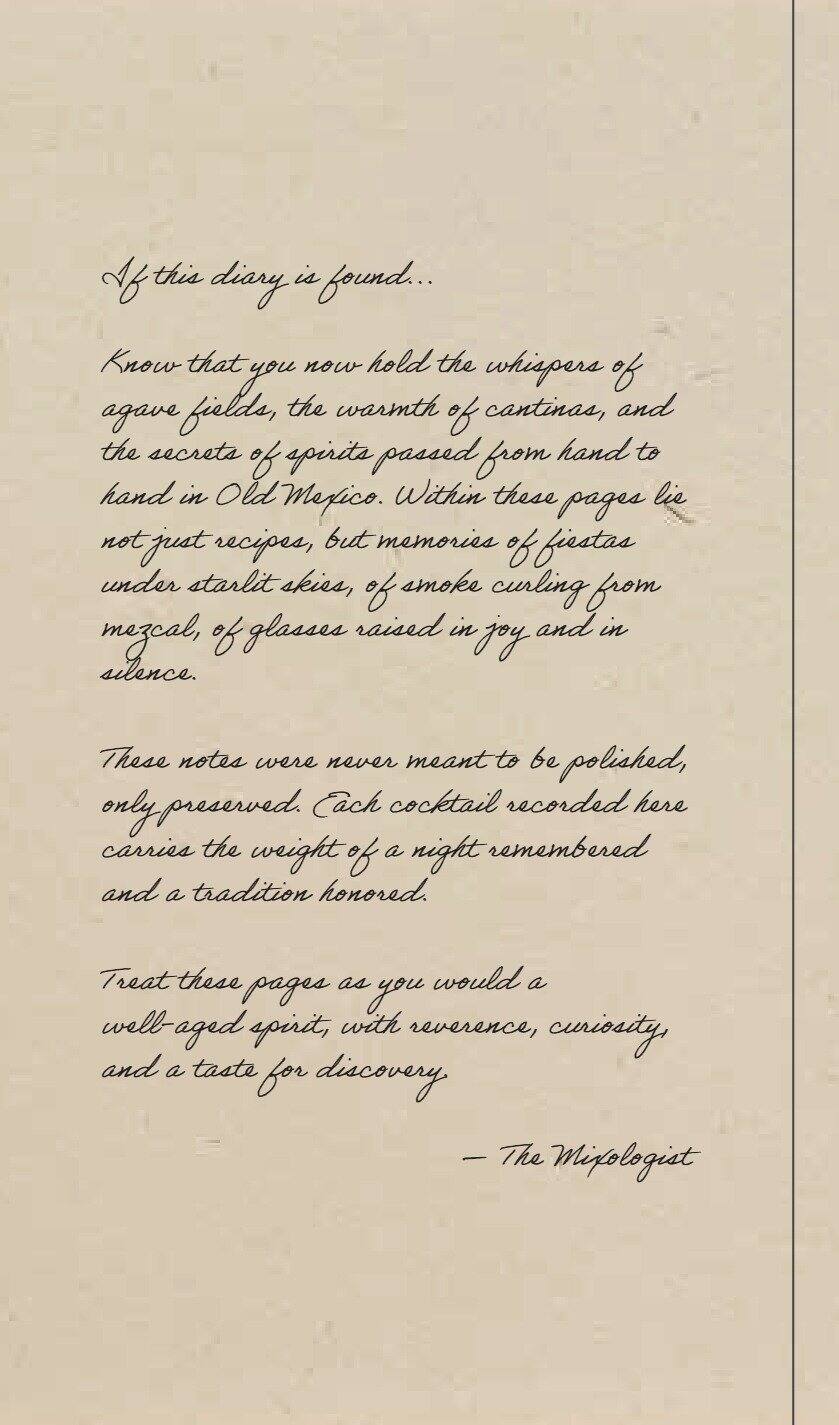 If this diary is found...
Know that you now hold the whispers of
agave fields, the warmth of cantinas, and
the secrets of spirits passed from hand to
hand in Old Mexico. Within these pages lie
not just recipes, but memories of fiestas
under starlit skies, of smoke curling from
mezcal, of glasses raised in joy and in
silence.
These notes were never meant to be polished,
only preserved. Each cocktail recorded here
carries the weight of a night remembered
and a tradition honored.
Treat these pages as you would a
well-aged spirit, with reverence, curiosity,
and a taste for discovery.
— The Mixologist